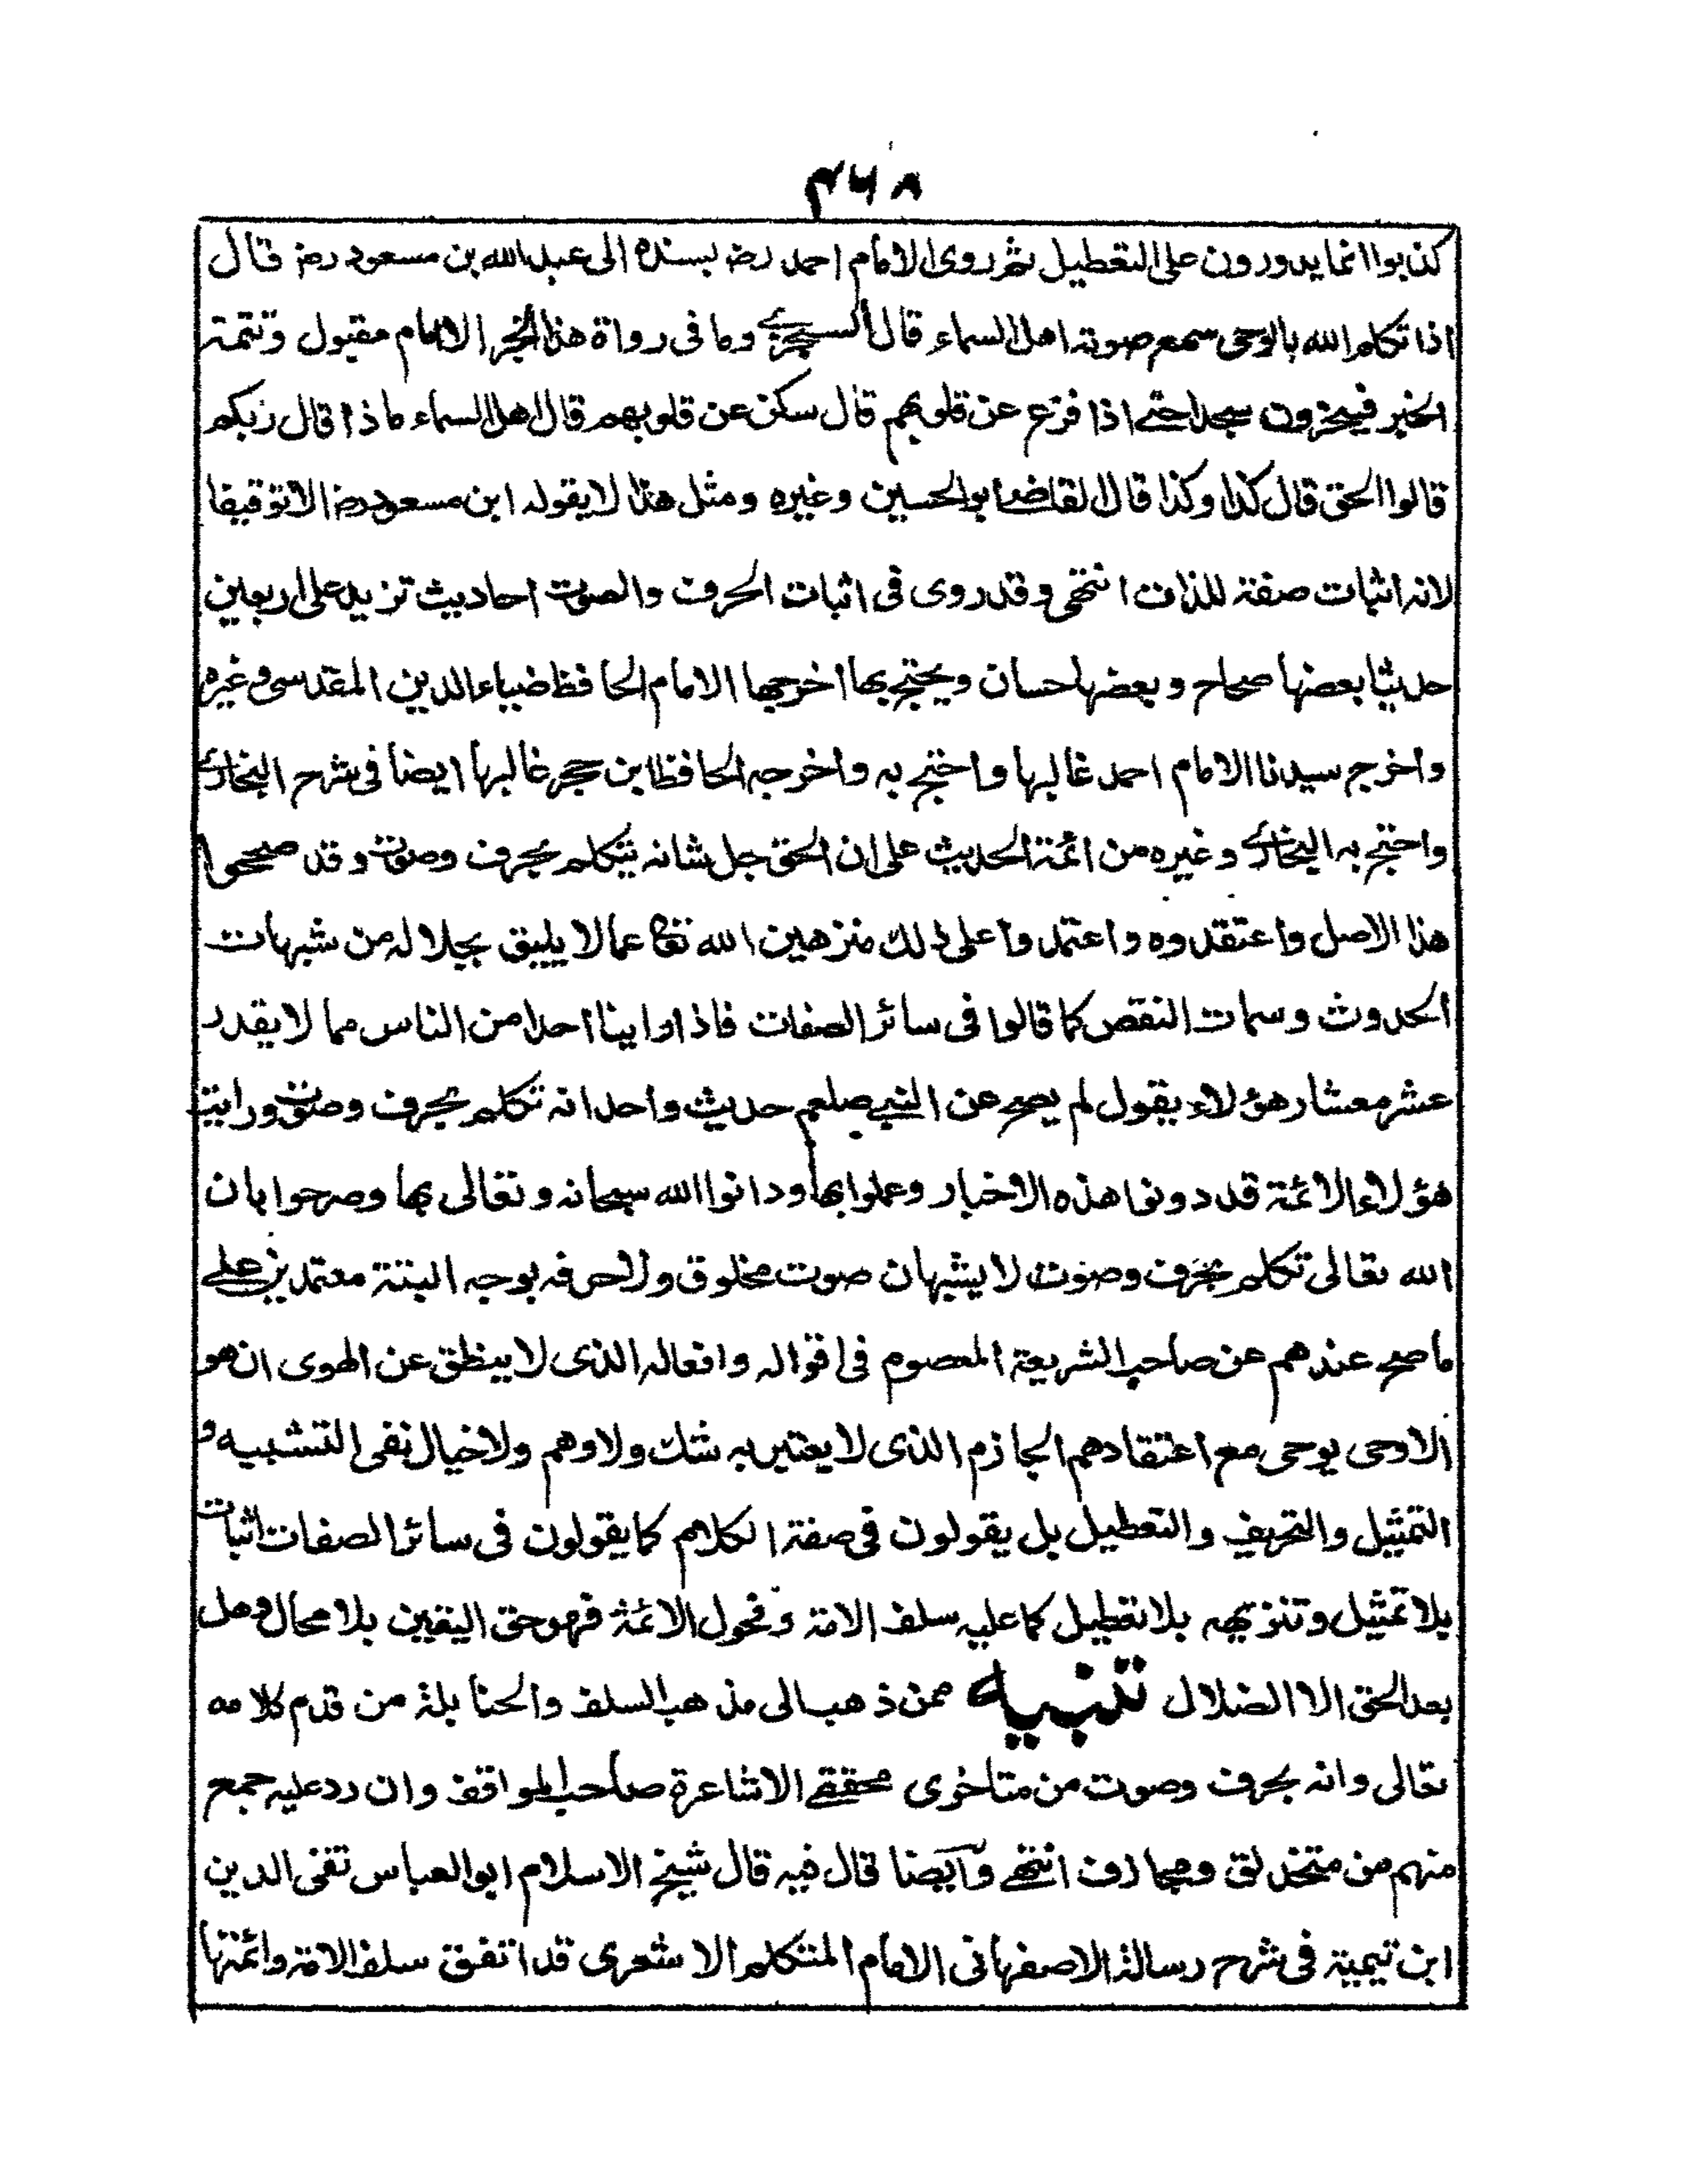 ۴۶۸
كذبوا انما يدورون على التعطيل ثم روى الامام احمد رضـ بسنده الى عبد الله بن مسعود رضـ قال
اذا تكلم الله بالوحى سمع صوته اهل السماء قال السجزے وما فى رواة هذا الخبر الا امام مقبول وتتمة
الخبر فيخرون سجدا حتے اذا فزع عن قلوبهم قال سكن عن قلوبهم قال اهل السماء ماذا قال ربكم
قالوا الحق قال كذا وكذا قال القاضے ابو الحسين وغيره ومثل هذا لا يقوله ابن مسعود رضـ الا توقيفا
لانه اثبات صفة للذات انتهى وقد روى فى اثبات الحرف والصوت احاديث تزيد على اربعين
حديثا بعضها صحاح وبعضها حسان ويحتج بها اخرجها الامام الحافظ ضياء الدين المقدسى وغيره
واخرج سيدنا الامام احمد غالبها واحتج به واخرجه الحافظ ابن حجر غالبها ايضا فى شرح البخارے
واحتج به البخارے وغيره من ائمة الحديث على ان الحق جل شانه يتكلم بحرف وصوت وقد صححوا
هذا الاصل واعتقدوه واعتمدوا على ذلك منزهين الله تعالى عما لا يليق بجلاله من شبهات
الحدوث وسمات النقص كما قالوا فى سائر الصفات فاذا راينا احدا من الناس مما لا يقدر
عشر معشار هؤلاء يقول لم يصح عن النبے صلعم حديث واحد انه تكلم بحرف وصوت ورايت
هؤلاء الائمة قد دونوا هذه الاخبار وعملوا بها ودانوا الله سبحانه وتعالى بها وصرحوا بان
الله تعالى تكلم بحرف وصوت لا يشبهان صوت مخلوق ولا حرفه بوجه البتة معتمدين علے
ما صح عندهم عن صاحب الشريعة المعصوم فى اقواله وافعاله الذى لا ينطق عن الهوى ان هو
الا وحى يوحى مع اعتقادهم الجازم الذى لا يعتريه شك ولا وهم ولا خيال نفى التشبيه و
التمثيل والتحريف والتعطيل بل يقولون فى صفة الكلام كما يقولون فى سائر الصفات اثبات
بلا تمثيل وتنزيه بلا تعطيل كما عليه سلف الامة وفحول الائمة فهو حق اليقين بلا محال وهل
بعد الحق الا الضلال تنبيه ممن ذهب الى مذهب السلف والحنابلة من قدم كلامه
تعالى وانه بحرف وصوت من متاخرى محققے الاشاعرة صاحب المواقف وان رد عليه جمع
منهم من متحذلق ومجازف انتهے وايضا قال فيه قال شيخ الاسلام ابو العباس تقى الدين
ابن تيمية فى شرح رسالة الاصفهانى الامام المتكلم الاشعرى قد اتفق سلف الامة وائمتها